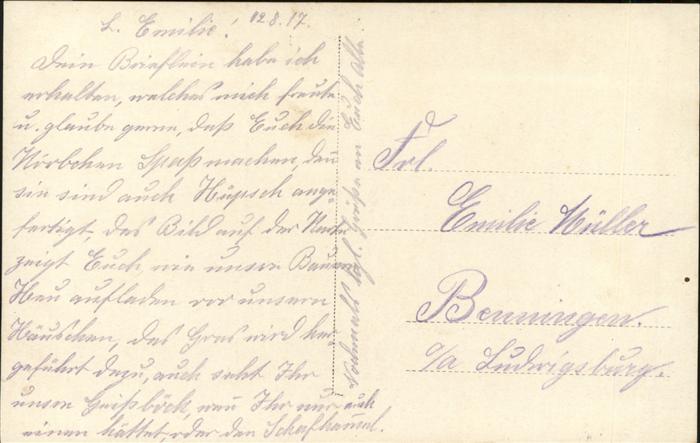 L. Emilie! 12.8.17.
Dein Brieflein habe ich
erhalten, welches mich freute
u. glaube gerne, daß Euch die
Körbchen Spaß machen, den
sie sind auch Hüpsch ange-
fertigt, das Bild auf der Karte
zeigt Euch wie unsere Bauern
Heu aufladen vor unserm
Häuschen, das Gras wird her-
geführt dazu, auch seht Ihr
unsern Geißbock, wen Ihr nur auch
einen hättet, oder den Schafhammel.
Nochmals hzl. Grüße an Euch Alle.
Frl.
Emilie Müller
Benningen.
o/a Ludwigsburg.